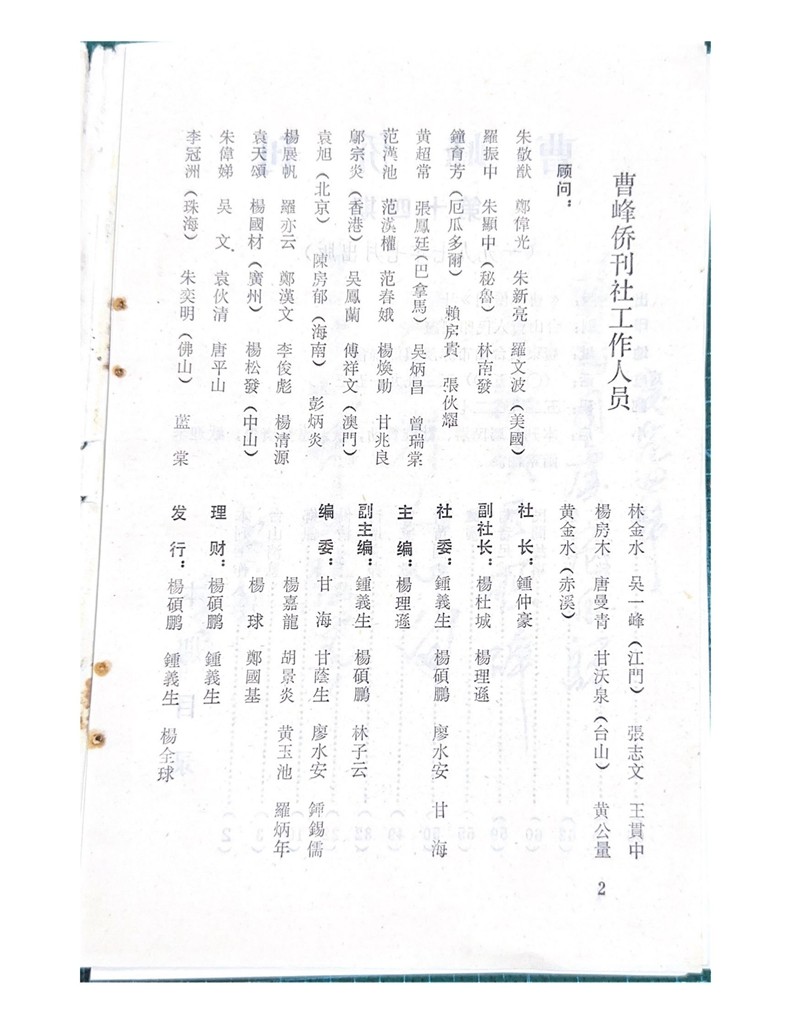 曹峰侨刊社工作人员
顾问：
朱敬猷　鄭偉光　朱新亮　羅文波（美國）
羅振中　朱顯中（秘魯）　林南發
鐘育芳（厄瓜多爾）　賴房貴　張伙耀
黄超常　張鳳廷（巴拿馬）　吴炳昌　曾瑞棠
范漢池　范漢權　范春娥　楊煥勛　甘兆良
鄔宗炎（香港）　吴鳳蘭　傅祥文（澳門）
袁旭（北京）　陳房郁（海南）　彭炳炎
楊展帆　羅亦云　鄭漢文　李俊彪　楊清源
袁天頌　楊國材（廣州）　楊松發（中山）
朱偉娣　吴　文　袁伙清　唐平山
李冠洲（珠海）　朱奕明（佛山）　蓝　棠
林金水　吴一峰（江門）　張志文　王貫中
楊房木　唐曼青　甘沃泉（台山）　黄公量
黄金水（赤溪）
社　长：鍾仲豪
副社长：楊杜城　楊理遜
社　委：鍾義生　楊碩鵬　廖水安　甘　海
主　编：楊理遜
副主编：鍾義生　楊碩鵬　林子云
编　委：甘　海　甘蔭生　廖水安　鍾錫儒
楊嘉龍　胡景炎　黄玉池　羅炳年
楊　球　鄭國基
理　财：楊碩鵬　鍾義生
发　行：楊碩鵬　鍾義生　楊全球
2